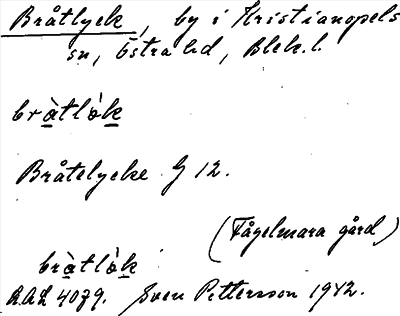 Bråtlyck, by i Kristianopels
sn, Östra hd, Blek. l.
bråtlòk
Bråtelycke G 12.
(Fågelmara gård)
bråtlòk
RAÄ 4079. Sven Pettersson 1942.